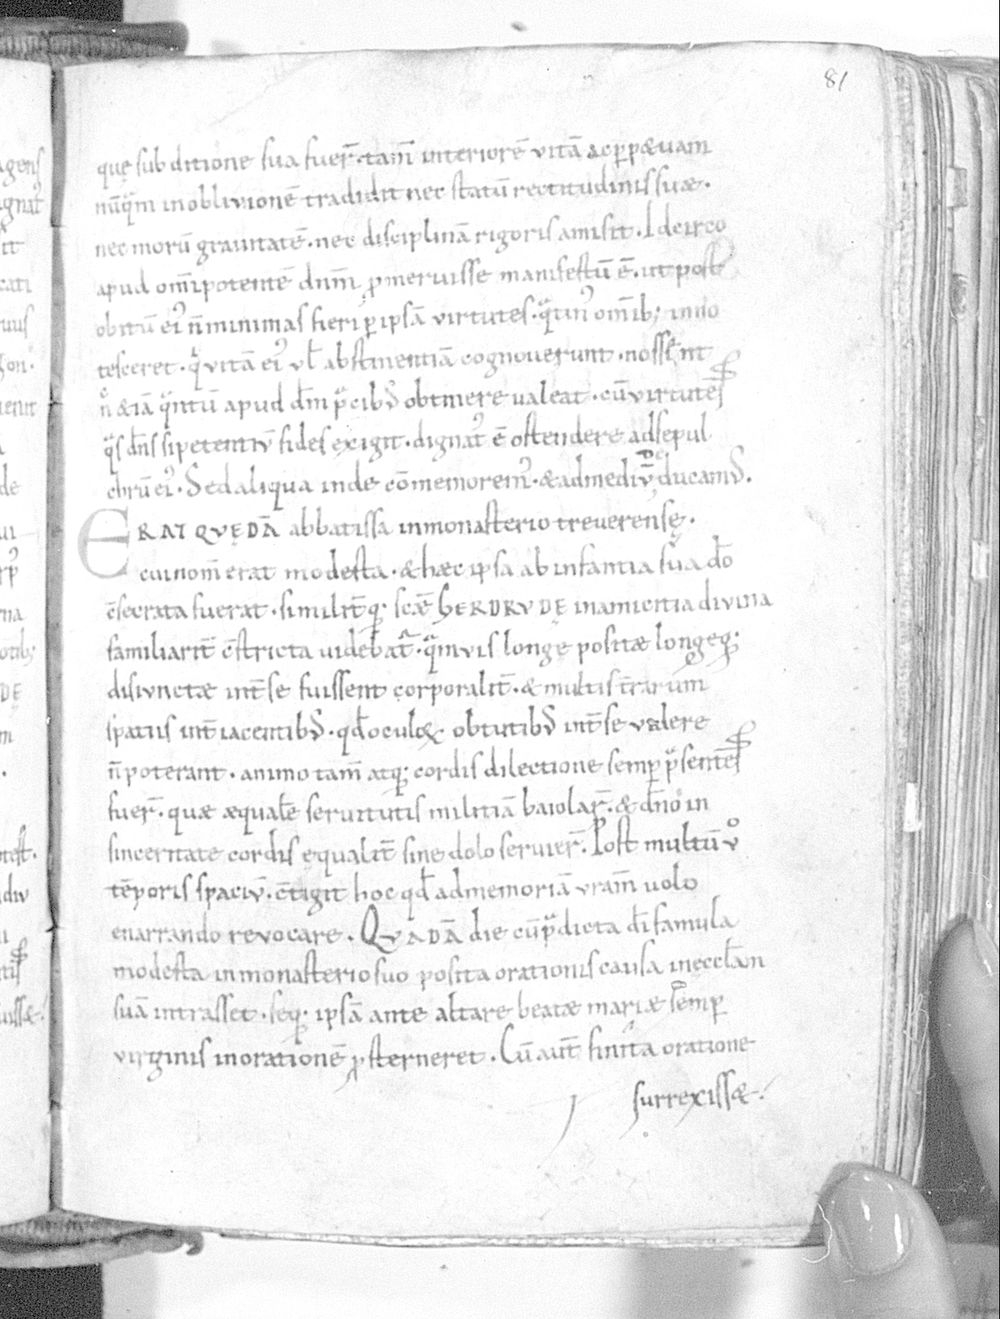 81
quę sub ditione sua fuer̄. tam̄ interiorē vitā ac ꝑpetuam
nūq̄m in oblivionē tradidit nec statū rectitudinis suæ.
nec morū gravitatē. nec disciplinā rigoris amisit. Idcirco
apud om̄ipotentē dn̄m ꝓmeruisse manifestū ē. ut post
obitū eiꝰ n̄ minimas fieri ꝑ ipsā virtutes. qͣtinꝰ om̄ibꝫ inno
tesceret. qͥ vitā eiꝰ vł abstinentiā cognoverunt. nossent
n̊ & iā qͣntū apud dm̄ p̄cibꝰ obtinere valeat. cū virtutes
qͣs dn̄s si petentiū fides exigit. dignatꝰ ē ostendere ad sepul
chrū eiꝰ. Sed aliqua inde cōmemoremꝰ. & ad mediū deducamꝰ.
ERAT QVĘDĀ abbatissa in monasterio treverensę.
cui nom̄ erat modesta. & hæc ipsa ab infantia sua dō
c̄secrata fuerat. similit̄qꝫ scǣ GERDRVDĘ in amicitia divina
familiarit̄ c̄stricta videbat̄. qͣmvis longe positæ longeqꝫ
disiunctæ int̄ se fuissent corporalit̄. & multis t̄rarum
spatiis int̄iacentibꝰ. qd̄ oculoꝝ obtutibꝰ int̄ se valere
n̄ poterant. animo tam̄ atqꝫ cordis dilectione semꝑ p̄sentes
fuer̄. quæ æquale servitutis militiā baiolar̄. & dn̄o in
sinceritate cordis ęqualit̄ sine dolo servier̄. Post multū v̊
tēporis spaciū. c̄tigit hoc qd̄ ad memoriā vr̄am volo
enarrando revocare. QVADĀ die cū p̄dicta dī famula
modesta in monasterio suo posita orationis causa in eccl̄am
suā intrasset. seqꝫ ipsā ante altare beatæ mariæ semꝑ
virginis in orationē ꝓsterneret. Cū aut̄ finita oratione
surrexisset.